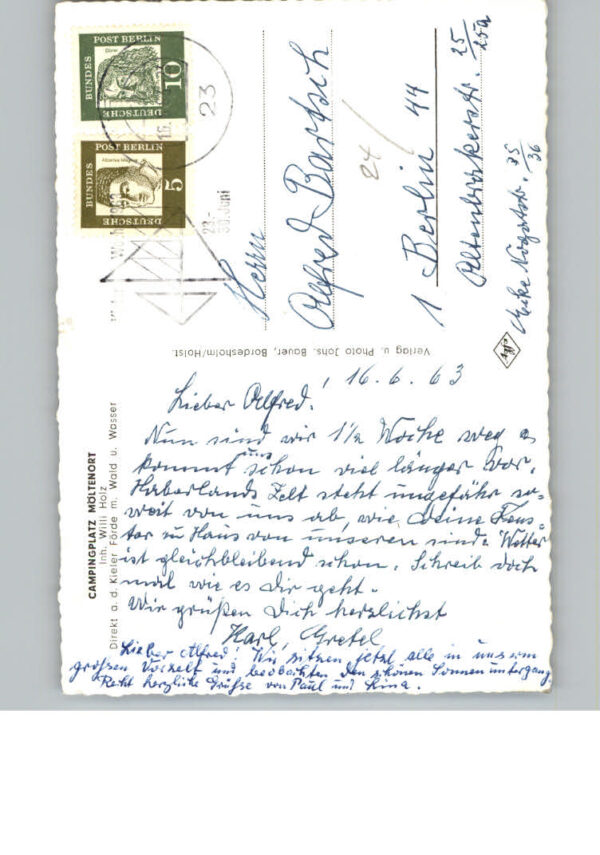 DEUTSCHE BUNDES POST BERLIN
Dürer
10
DEUTSCHE BUNDES POST BERLIN
Albertus Magnus
5
23
16.
23.-
30. Juni
Herrn
Alfred Bartsch
24/
1 Berlin 44
25/25a
35/36
Verlag u. Photo Johs. Bauer, Bordesholm/Holst.
CAMPINGPLATZ MÖLTENORT
Inh. Willi Holz
Direkt a. d. Kieler Förde m. Wald u. Wasser
16.6.63
Lieber Alfred!
Nun sind wir 1½ Woche weg es
kommt uns schon viel länger vor.
Haberlands Zelt steht ungefähr so-
weit von uns ab, wie Deine Fens-
ter zu Haus von unseren sind. Wetter
ist gleichbleibend schön. Schreib doch
mal wie es Dir geht.
Wir grüßen Dich herzlichst
Karl, Gretel
Lieber Alfred! Wir sitzen jetzt alle in unserm
großen Vorzelt und beobachten den schönen Sonnenuntergang.
Recht herzliche Grüße von Paul und Lina.